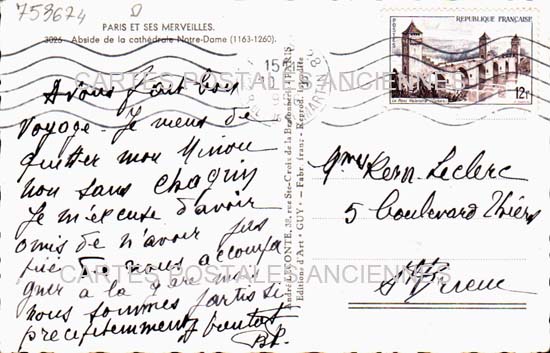 753674
PARIS ET SES MERVEILLES.
3026 - Abside de la cathédrale Notre-Dame (1163-1260).
RÉPUBLIQUE FRANÇAISE
CAHORS
Le Pont Valentré
12F
CARTES POSTALES ANCIENNES
voyage. Je viens de
quitter mon Minou
non sans chagrin
Je m'excuse d'avoir
omis de n'avoir pas
de vous accompa
gner à la gare mais
nous sommes partis si
précipitemment
André LECONTE, 38, rue Ste-Croix de la Bretonnerie, PARIS
Editions d'Art "GUY" - Fabr. franç. - Reprod. interdite
Kern-Leclerc
5 boulevard Thiers
CARTES POSTALES ANCIENNES